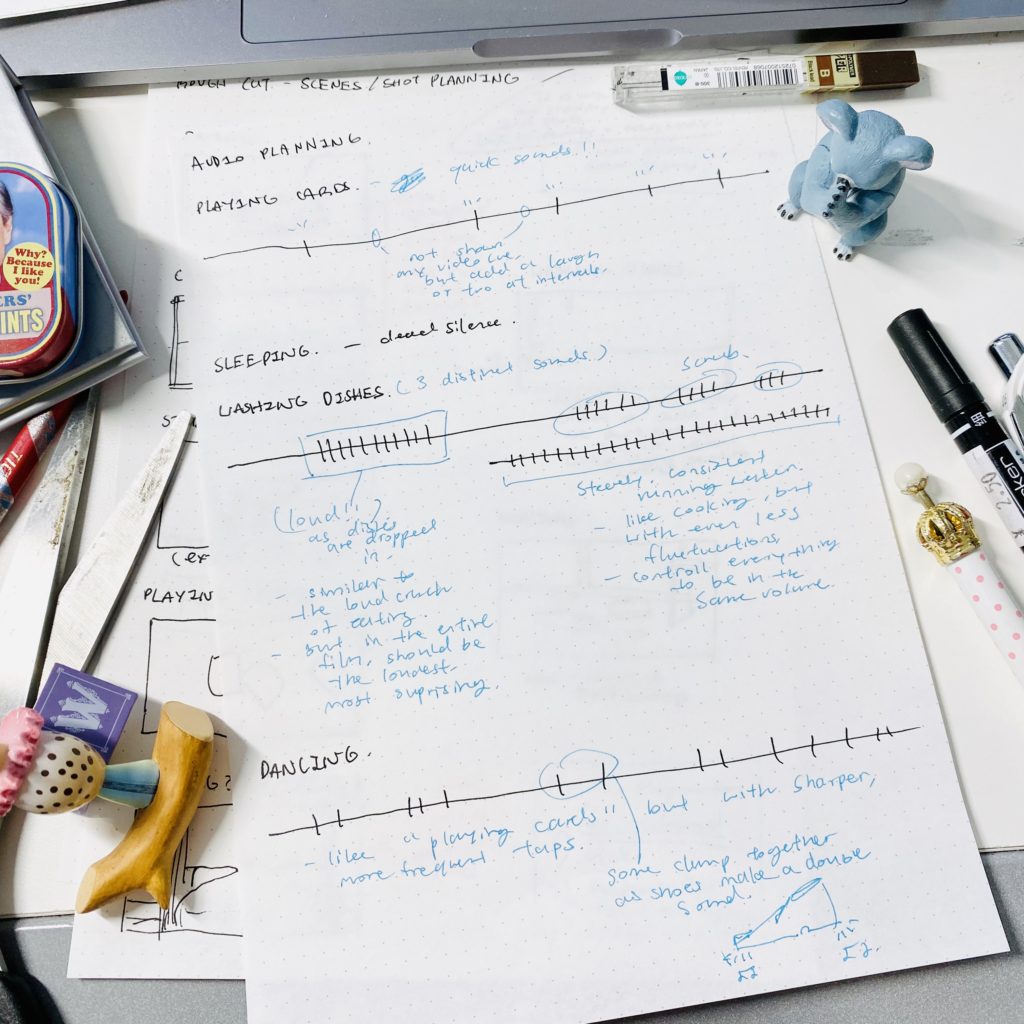 ROUGH CUT - SCENES/SHOT PLANNING
AUDIO PLANNING.
PLAYING CARDS. - quick sounds!!
not shown
any video cue,
but add a laugh
or two at intervals.
SLEEPING. - dead silence.
WASHING DISHES. (3 distinct sounds.)
scrub.
(loud!!)
as dishes
are dropped
in.
- similar to
the loud crunch
of eating.
- but in the entire
film, should be
the loudest,
most suprising.
Steady, consistent
running water.
- like cooking, but
with even less
fluctuations
- controll everything
to be in the
same volume.
DANCING.
- like "playing cards" but with sharper,
more frequent taps.
some clump together
as shoes make a double
sound.
Why?
Because
I like
you!
ERS'
INTS
PLAYIN
(ex
G?
W
B
2.50